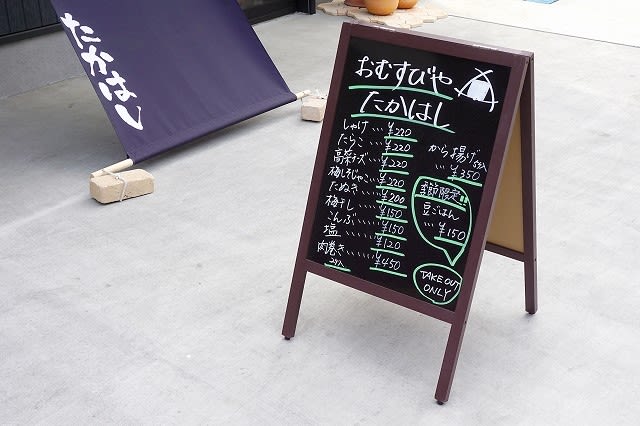 たかはし
おむすびや
たかはし
しゃけ…¥220
たらこ…¥220
高菜チーズ…¥220
梅しそじゃこ…¥220
たぬき…¥200
梅干し…¥150
こんぶ…¥150
塩…¥120
肉巻き…¥450
2ヶ入
から揚げ5ヶ入
…¥350
季節限定!!
豆ごはん
…¥150
TAKE OUT
ONLY